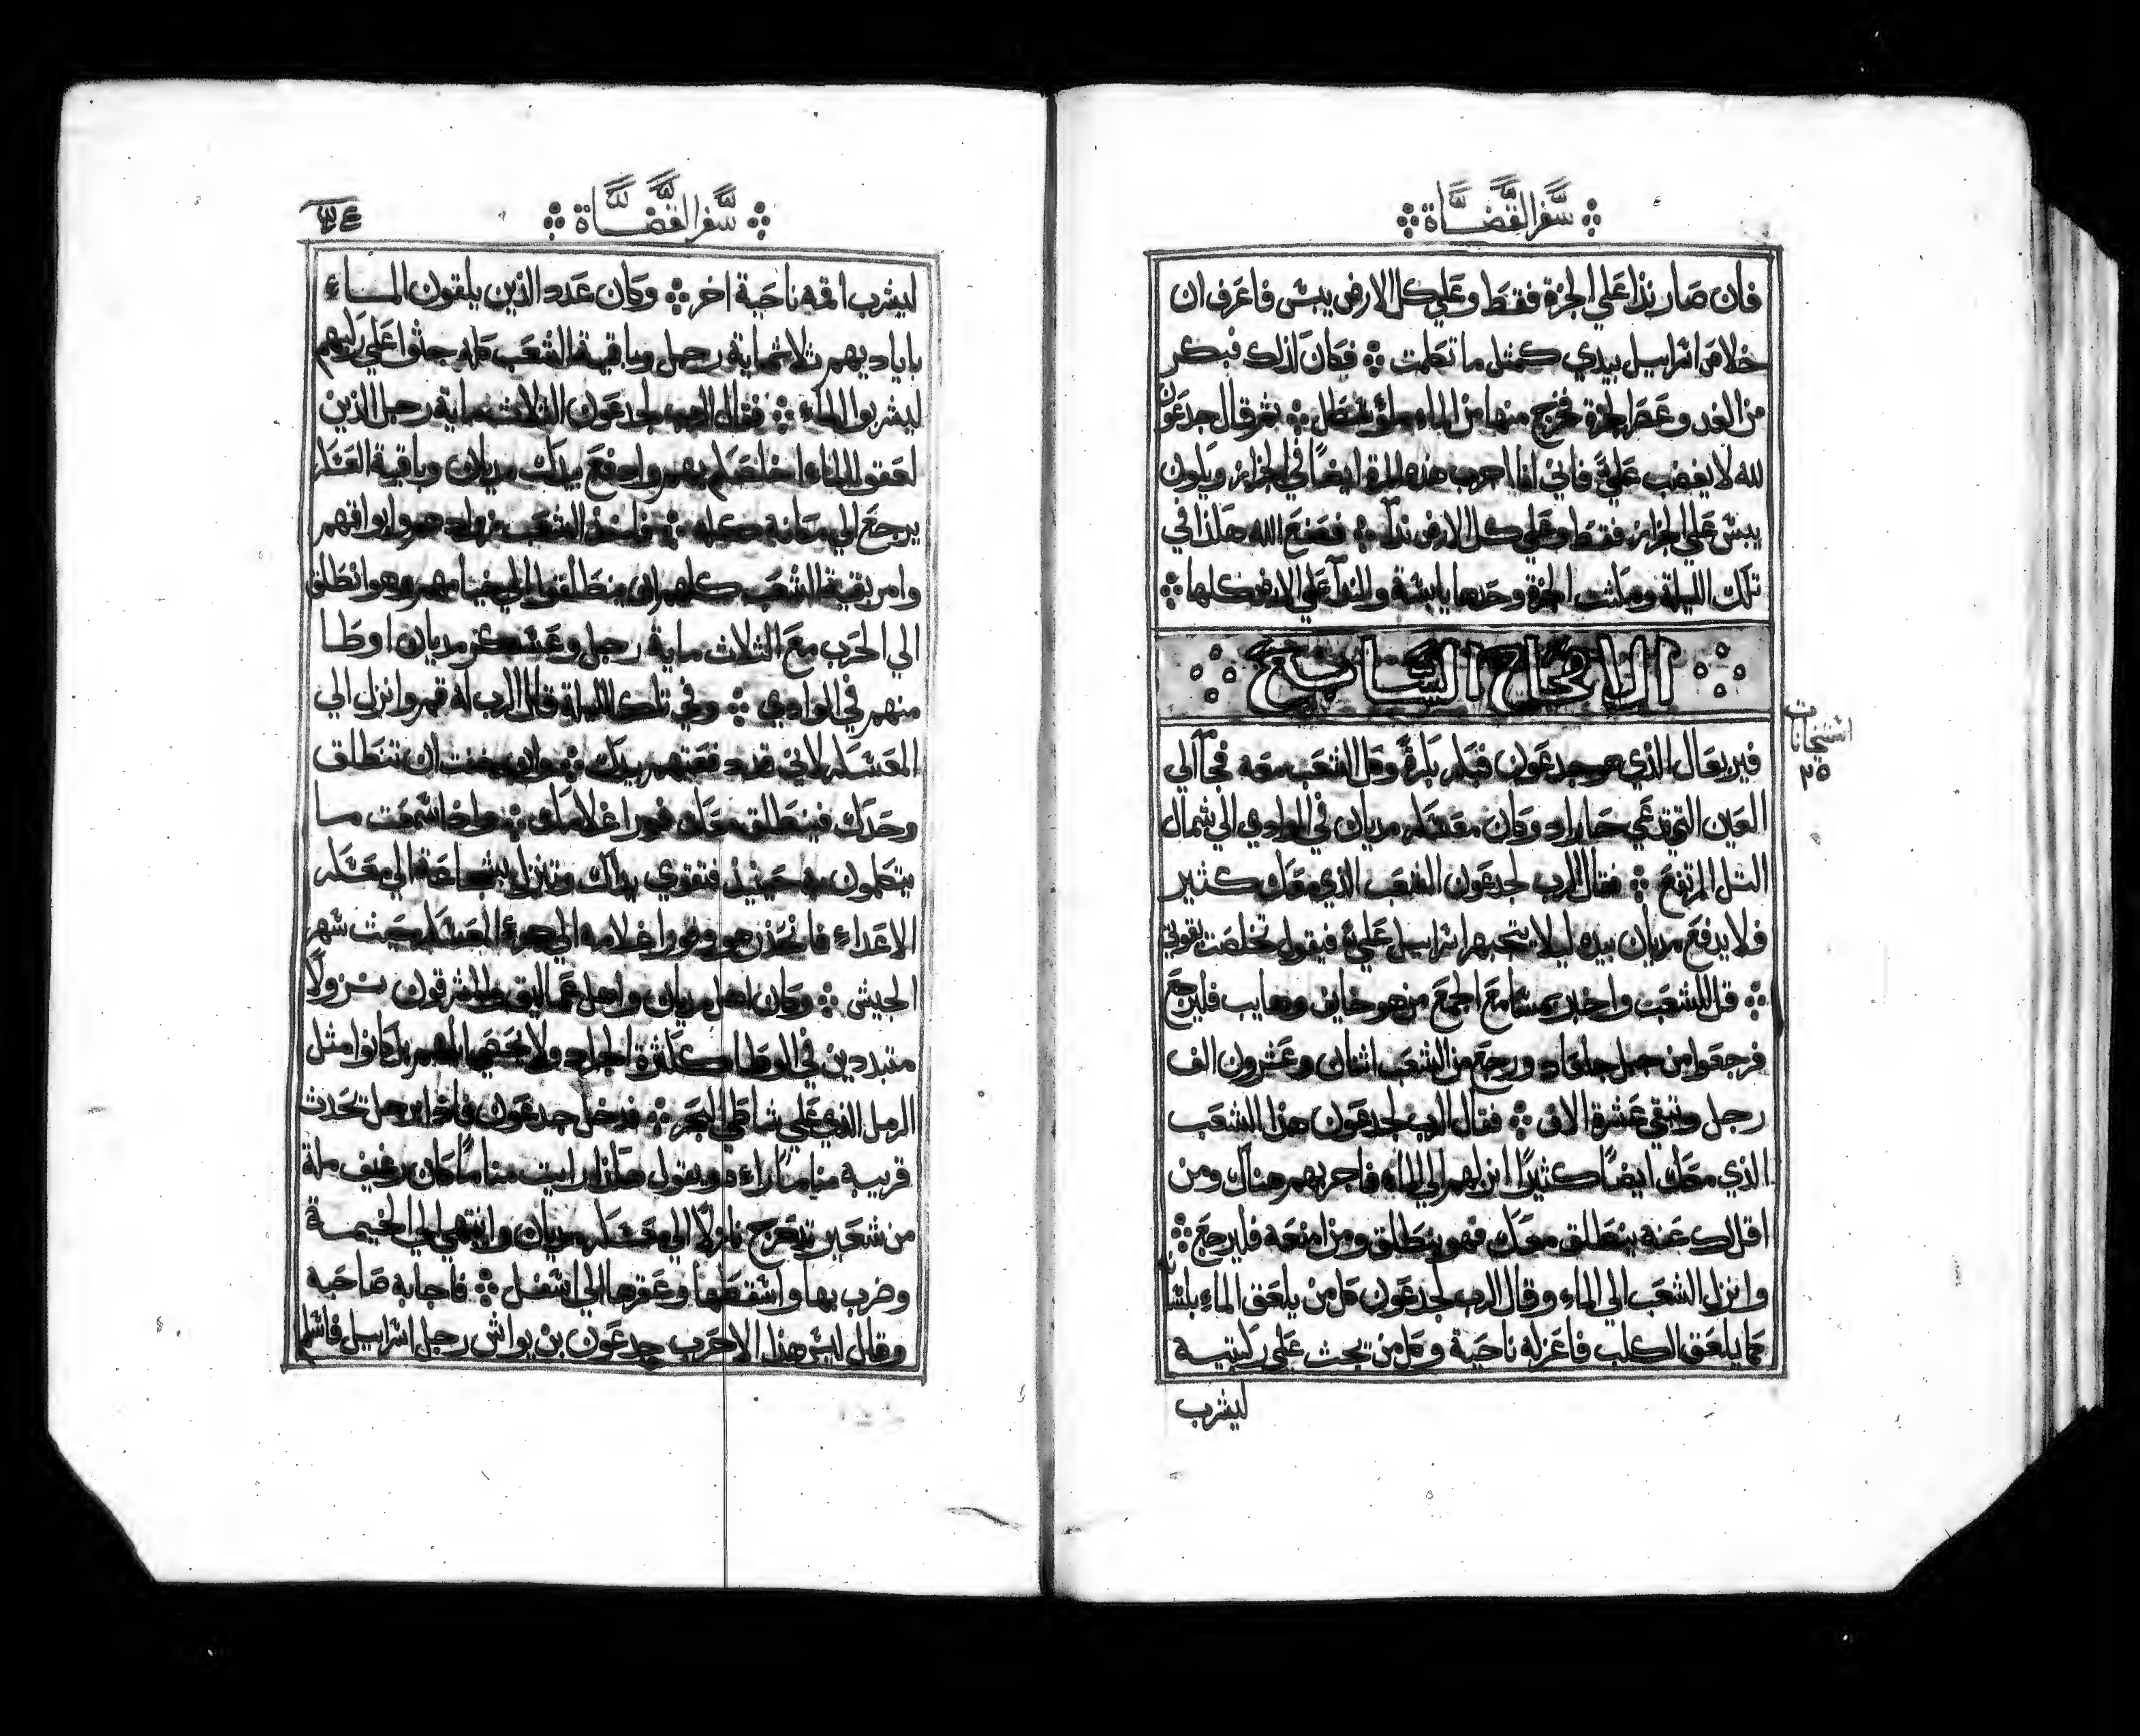 سفر القضاة
فان صار ندا علي الجزة فقط وعلي كل الارض يبس فاعرف ان
خلاص اسراييل بيدي كمثل ما تكلمت فكان كذلك فبكر
من الغد وعصر الجزة فخرج منها من الماء ثم قال جدعون
لله لا يغضب علي فاني انا اجرب هذه المرة ايضًا في الجزائز ويكون
يبس علي الجزائز فقط وعلي كل الارض ندا فصنع الله هكذا في
تلك الليلة وحدها يابسة والندا علي الارض كلها
الاصحاح السابع
استيخانات
٢٥
فيربعال الذي هو جدعون فبكر بكرةً وكل الشعب معه فجا الي
العين التي تدعي حاراد وكان معسكر مديان في الوادي الي شمال
التل المرتفع فقال الرب لجدعون الشعب الذي معك كثير
فلا يدفع مديان بيده ليلا يتجبر اسراييل علي فيقول تخلصت بقوتي
قل للشعب واخبر بمسامع الجمع من هو خايف وهايب فليرجع
فرجعوا من جبل جلعاد ورجع من الشعب اثنان وعشرون الف
رجل وتبقي عشرة الاف فقال الرب لجدعون هذا الشعب
الذي معك ايضًا كثيرًا انزلهم الي الماء فاجربهم هناك ومن
اقل لك عنه ينطلق معك فهو ينطلق ومن امنعه فليرجع
وانزل الشعب الي الماء وقال الرب لجدعون كل من يلعق الماء بلسانه
كما يلعق الكلب فاعزله ناحية وكل من يجث علي ركبتيه
ليشرب
سفر القضاة
٣٤
ليشرب اقمه ناحية اخر وكان عدد الذين يلقون الماء
باياديهم ثلاثماية رجل وباقية الشعب كله جثوا علي ركبهم
ليشربوا الماء فقال الرب لجدعون الثلاث ماية رجل الذين
لعقوا الماء اخلصكم بهم وادفع بيدك مديان وباقية
يرجع الي مكانه كله الشعب زوادهم وابواقهم
وامر بقية الشعب كلهم ان ينطلقوا الي خيامهم وهو انطلق
الي الحرب مع الثلاث ماية رجل وعسكر مديان اوطا
منهم في الوادي وفي تلك الليلة قال الرب له قم وانزل الي
المعسكر لاني قد دفعتهم بيدك وان خفت ان تنطلق
وحدك فينطلق معك فورا غلامك واذا سمعت ما
يتكلمون به حينيذ فتقوي يداك وتنزل بشجاعة الي معسكر
الاعداء فانحدر هو وفورا غلامه الي جزء العسكر حيث سهر
الجيش وكان اهل مديان واهل عماليق والمشرقون نزولًا
متبددين في الوطا ككثرة الجراد ولا يحصي بل كانوا مثل
الرمل الذي علي شاطي البحر فدخل جدعون فاذا رجل تحدث
قريبه منامًا راءه ويقول هكذا رايت منامًا كان رغيف ملة
من شعير تدحرج نازلًا الي معسكر مديان وانتهي الي الخيمة
وضرب بها واسقطها وعقرها الي اسفل فاجابه صاحبه
وقال ليس هذا الا حرب جدعون بن يواش رجل اسراييل